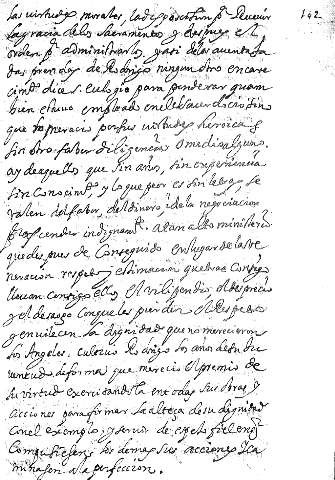 142
las virtudes morales, la disposicion pª Recevir
la gracia de los Sacramentos y despues el
orden pª administrarlos, y asi de las aventaja
das prendas de Rodrigo ningun otro encare
cimtº dice S. Eulogio para ponderar quam
bien estuvo empleado en el el sacerdocio sino
que lo merecio por sus virtudes heroicas
sin otro fabor diligencia o medio alguno.
ay de aquellos que sin años, sin experiencia
sin Conocimtº y lo que peor es sin letras, se
valen del fabor, del dinero, i de la negociacion
ascender indignamtº a tan alto ministerio
que despues de Conseguido en lugar de la ve
neracion respeto y estimacion que havia Consigo
llevan consigo ellos el vilipendio, el desprecio
y el desayre Con que les pierden el Respecto
y envilecen la dignidad que no merecieron
los Angeles. cultivo Rodrigo los años de su Ju
ventud de forma que merecio el premio de
su virtud exercitandola en todas sus obras y
acciones para firmar la alteza de su dignidad
Con el exemplo, y servir de espejo fiel en qº
Compusiesen los demas sus acciones y ca
minasen a la perfeccion.